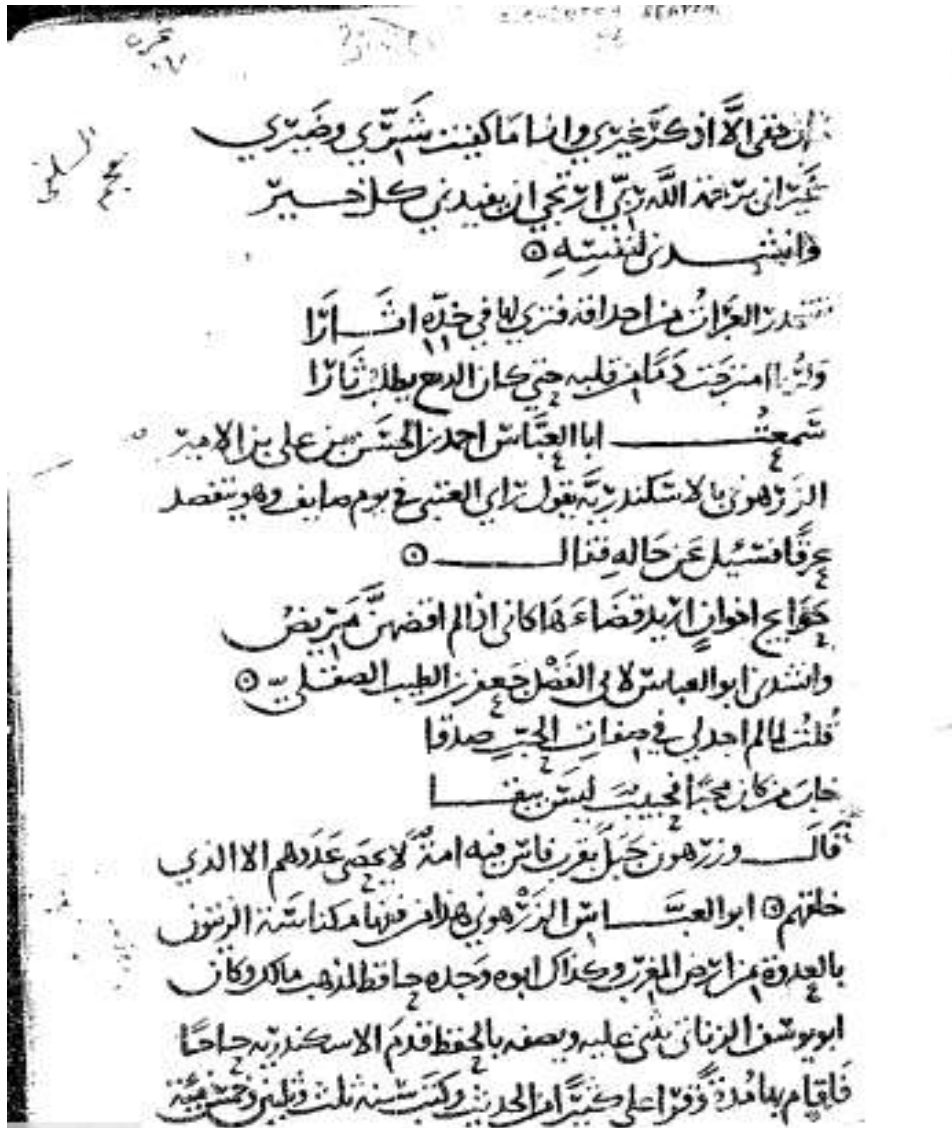 معجم السلفي
ان حقي الا اذكر غيري وانا ما كفيت شري وضيري
غير اني برحمة الله ربي ارتجي ان يفيدني كل خير
وانشدني لنفسه ⊙
العبرات من احداقه فتري لها في خده اثارا
امتزجت دما من قلبه حتي كان الدمع يطلب ثارا
سمعت ابا العباس احمد بن الحسن بن علي بن الامير
الزرهوني بالاسكندرية يقول راي العتبي في يوم صايف وهو يتفصد
عرقا فسئيل عن حاله فقال ⊙
حوايج اخوان اريد قضاءها كاني اذا لم اقضهن مريض
وانشدني ابو العباس لابي الفضل جعفر بن الطيب الصقلي ⊙
قلت لما لم اجد لي في صفات الحب صدقا
خاب من كان محبا فحبيب ليس يبقا
قال وزرهون جبل بقرب فاس فيه امة لا يحصي عددهم الا الذي
خلقهم ⊙ ابو العباس الزرهوني هذا من فقهاء مكناسة الزيتون
بالعدوة من ارض المغرب وكذاك ابوه وجده حافظ لمذهب مالك وكان
ابو يوسف الزناتي يثني عليه ويصفه بالحفظ قدم الاسكندريه حاجا
فاقام بها مدة وقرا علي كثيرا من الحديث وكتب سنه ثلث وثلثين وخمس مئة